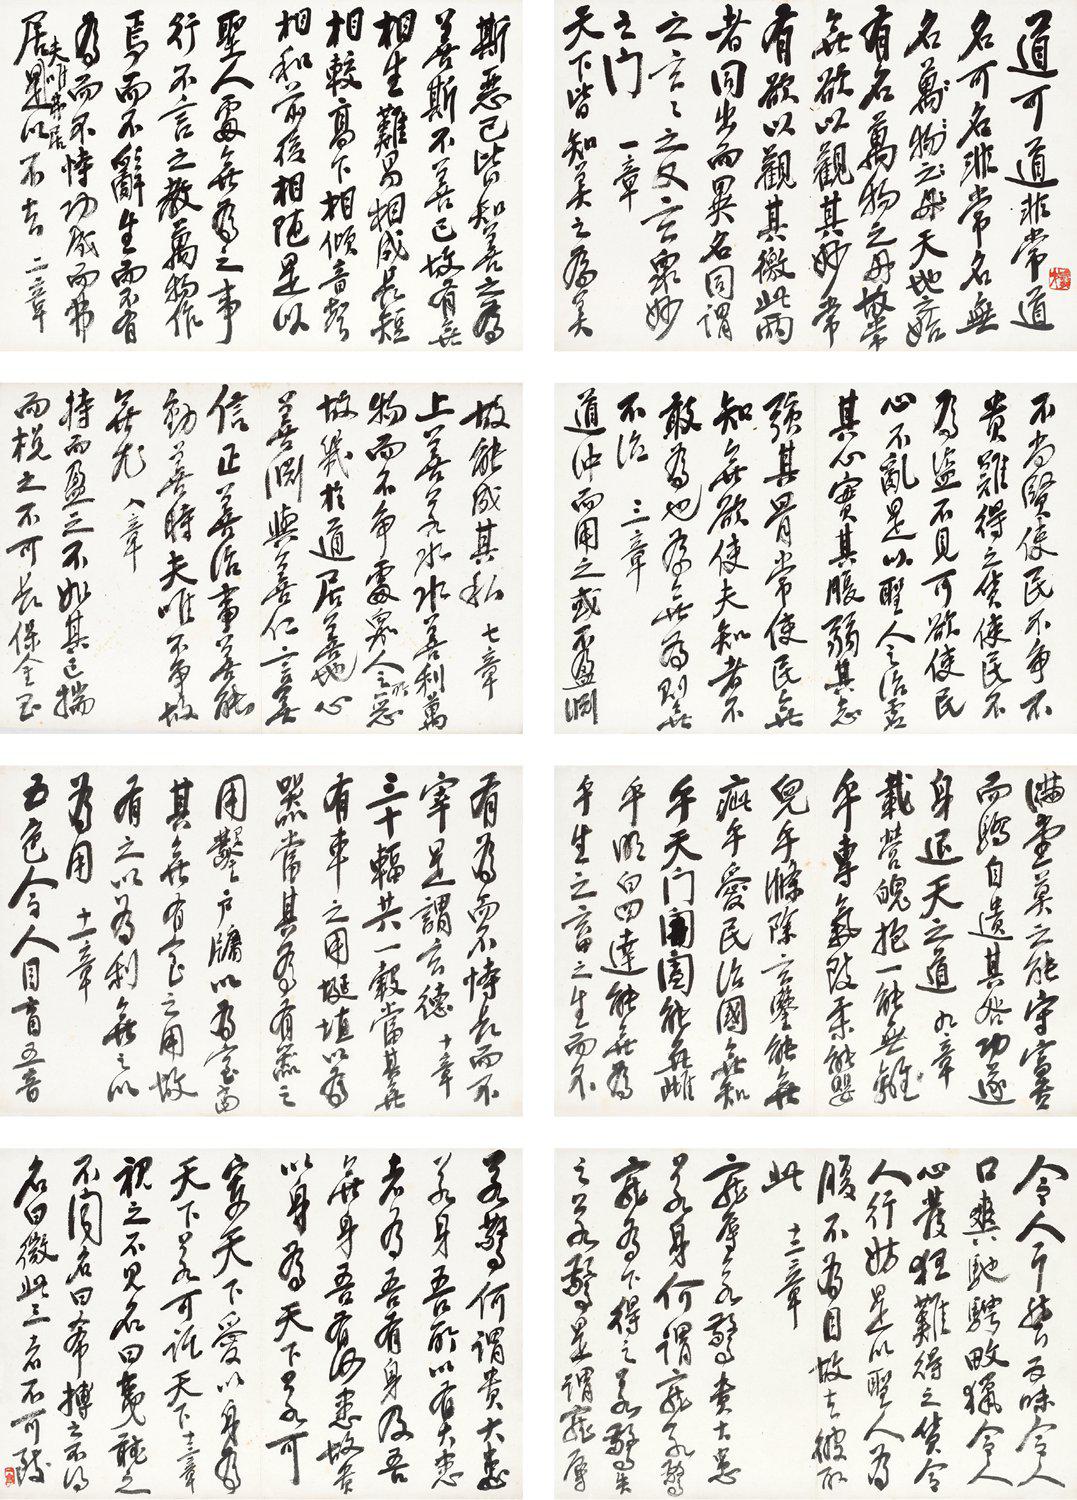 道可道非常道
名可名非常名無
名萬物之母天地之始
有名萬物之母故常
無欲以觀其妙常
有欲以觀其徼此兩
者同出而異名同謂
之玄玄之又玄眾妙
之門 一章
天下皆知美之為美
斯惡已皆知善之為
善斯不善已故有無
相生難易相成長短
相較高下相傾音聲
相和前後相隨是以
聖人處無為之事
行不言之教萬物作
焉而不辭生而不有
為而不恃功成而弗
居夫唯弗居是以不去 二章
不尚賢使民不爭不
貴難得之貨使民不
為盜不見可欲使民
心不亂是以聖人之治虛
其心實其腹弱其志
強其骨常使民無
知無欲使夫知者不
敢為也為無為則無
不治 三章
道沖而用之或不盈淵
故能成其私 七章
上善若水水善利萬
物而不爭處眾人之所惡
故幾於道居善地心
善淵與善仁言善
信正善治事善能
動善時夫唯不爭故
無尤 八章
持而盈之不如其已揣
而梲之不可長保金玉
滿堂莫之能守富貴
而驕自遺其咎功遂
身退天之道 九章
載營魄抱一能無離
乎專氣致柔能嬰
兒乎滌除玄鑒能無
疵乎愛民治國無知
乎天門開闔能無雌
乎明白四達能無為
乎生之畜之生而不
有為而不恃長而不
宰是謂玄德 十章
三十輻共一轂當其無
有車之用埏埴以為
器當其為有器之
用鑿戶牖以為室當
其無有室之用故
有之以為利無之以
為用 十一章
五色令人目盲五音
令人耳聾五味令人
口爽馳騁畋獵令人
心發狂難得之貨令
人行妨是以聖人為
腹不為目故去彼取
此 十二章
寵辱若驚貴大患
若身何謂寵若驚
寵為下得之若驚失
之若驚是謂寵辱
若驚何謂貴大患
若身吾所以有大患
者為吾有身及吾
無身吾有何患故貴
以身為天下若可
寄天下愛以身為
天下若可託天下 十三章
視之不見名曰夷聽之
不聞名曰希搏之不得
名曰微此三者不可致